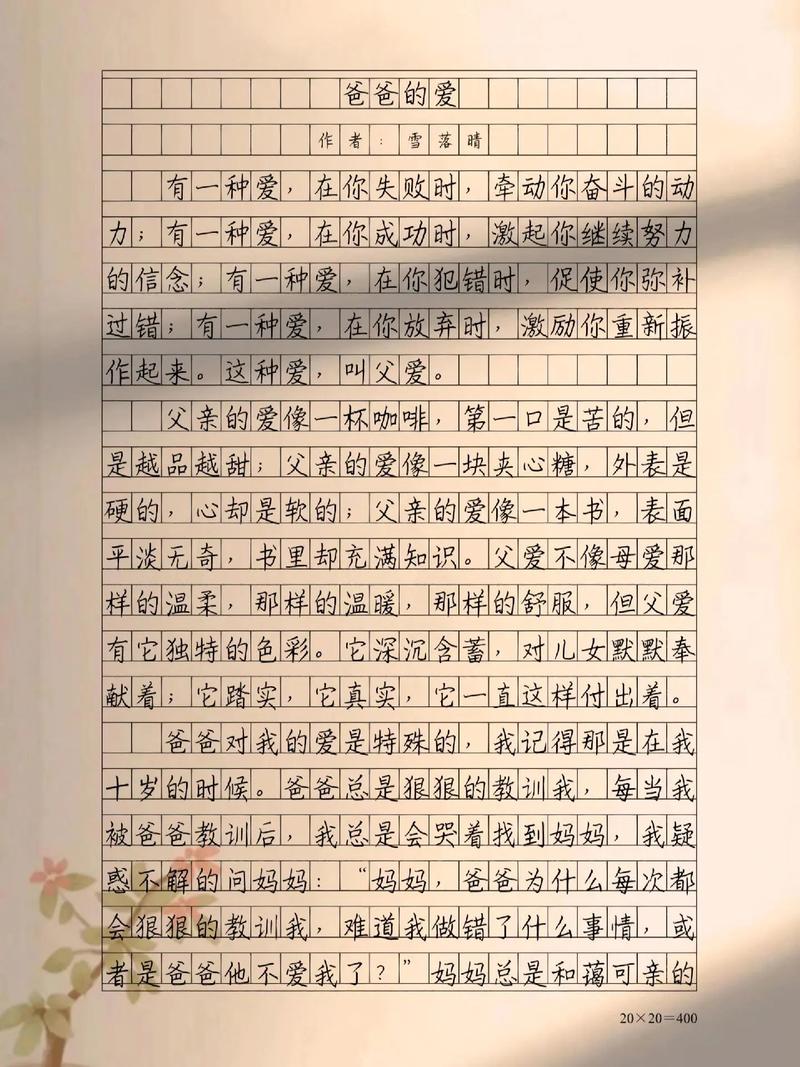 爸爸的爱
作者：雪落晴
有一种爱，在你失败时，牵动你奋斗的动
力；有一种爱，在你成功时，激起你继续努力
的信念；有一种爱，在你犯错时，促使你弥补
过错；有一种爱，在你放弃时，激励你重新振
作起来。这种爱，叫父爱。
父亲的爱像一杯咖啡，第一口是苦的，但
是越品越甜；父亲的爱像一块夹心糖，外表是
硬的，心却是软的；父亲的爱像一本书，表面
平淡无奇，书里却充满知识。父爱不像母爱那
样的温柔，那样的温暖，那样的舒服，但父爱
有它独特的色彩。它深沉含蓄，对儿女默默奉
献着；它踏实，它真实，它一直这样付出着。
爸爸对我的爱是特殊的，我记得那是在我
十岁的时候。爸爸总是狠狠的教训我，每当我
被爸爸教训后，我总是会哭着找到妈妈，我疑
惑不解的问妈妈：“妈妈，爸爸为什么每次都
会狠狠的教训我，难道我做错了什么事情，或
者是爸爸他不爱我了？”妈妈总是和蔼可亲的
20×20=400